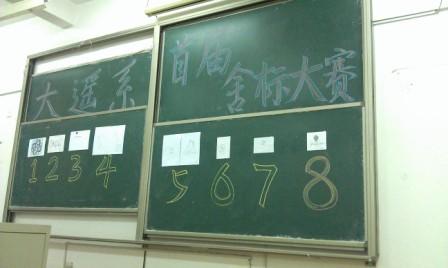 大遥系
首届
舍标大赛
1 2 3 4
5 6 7 8